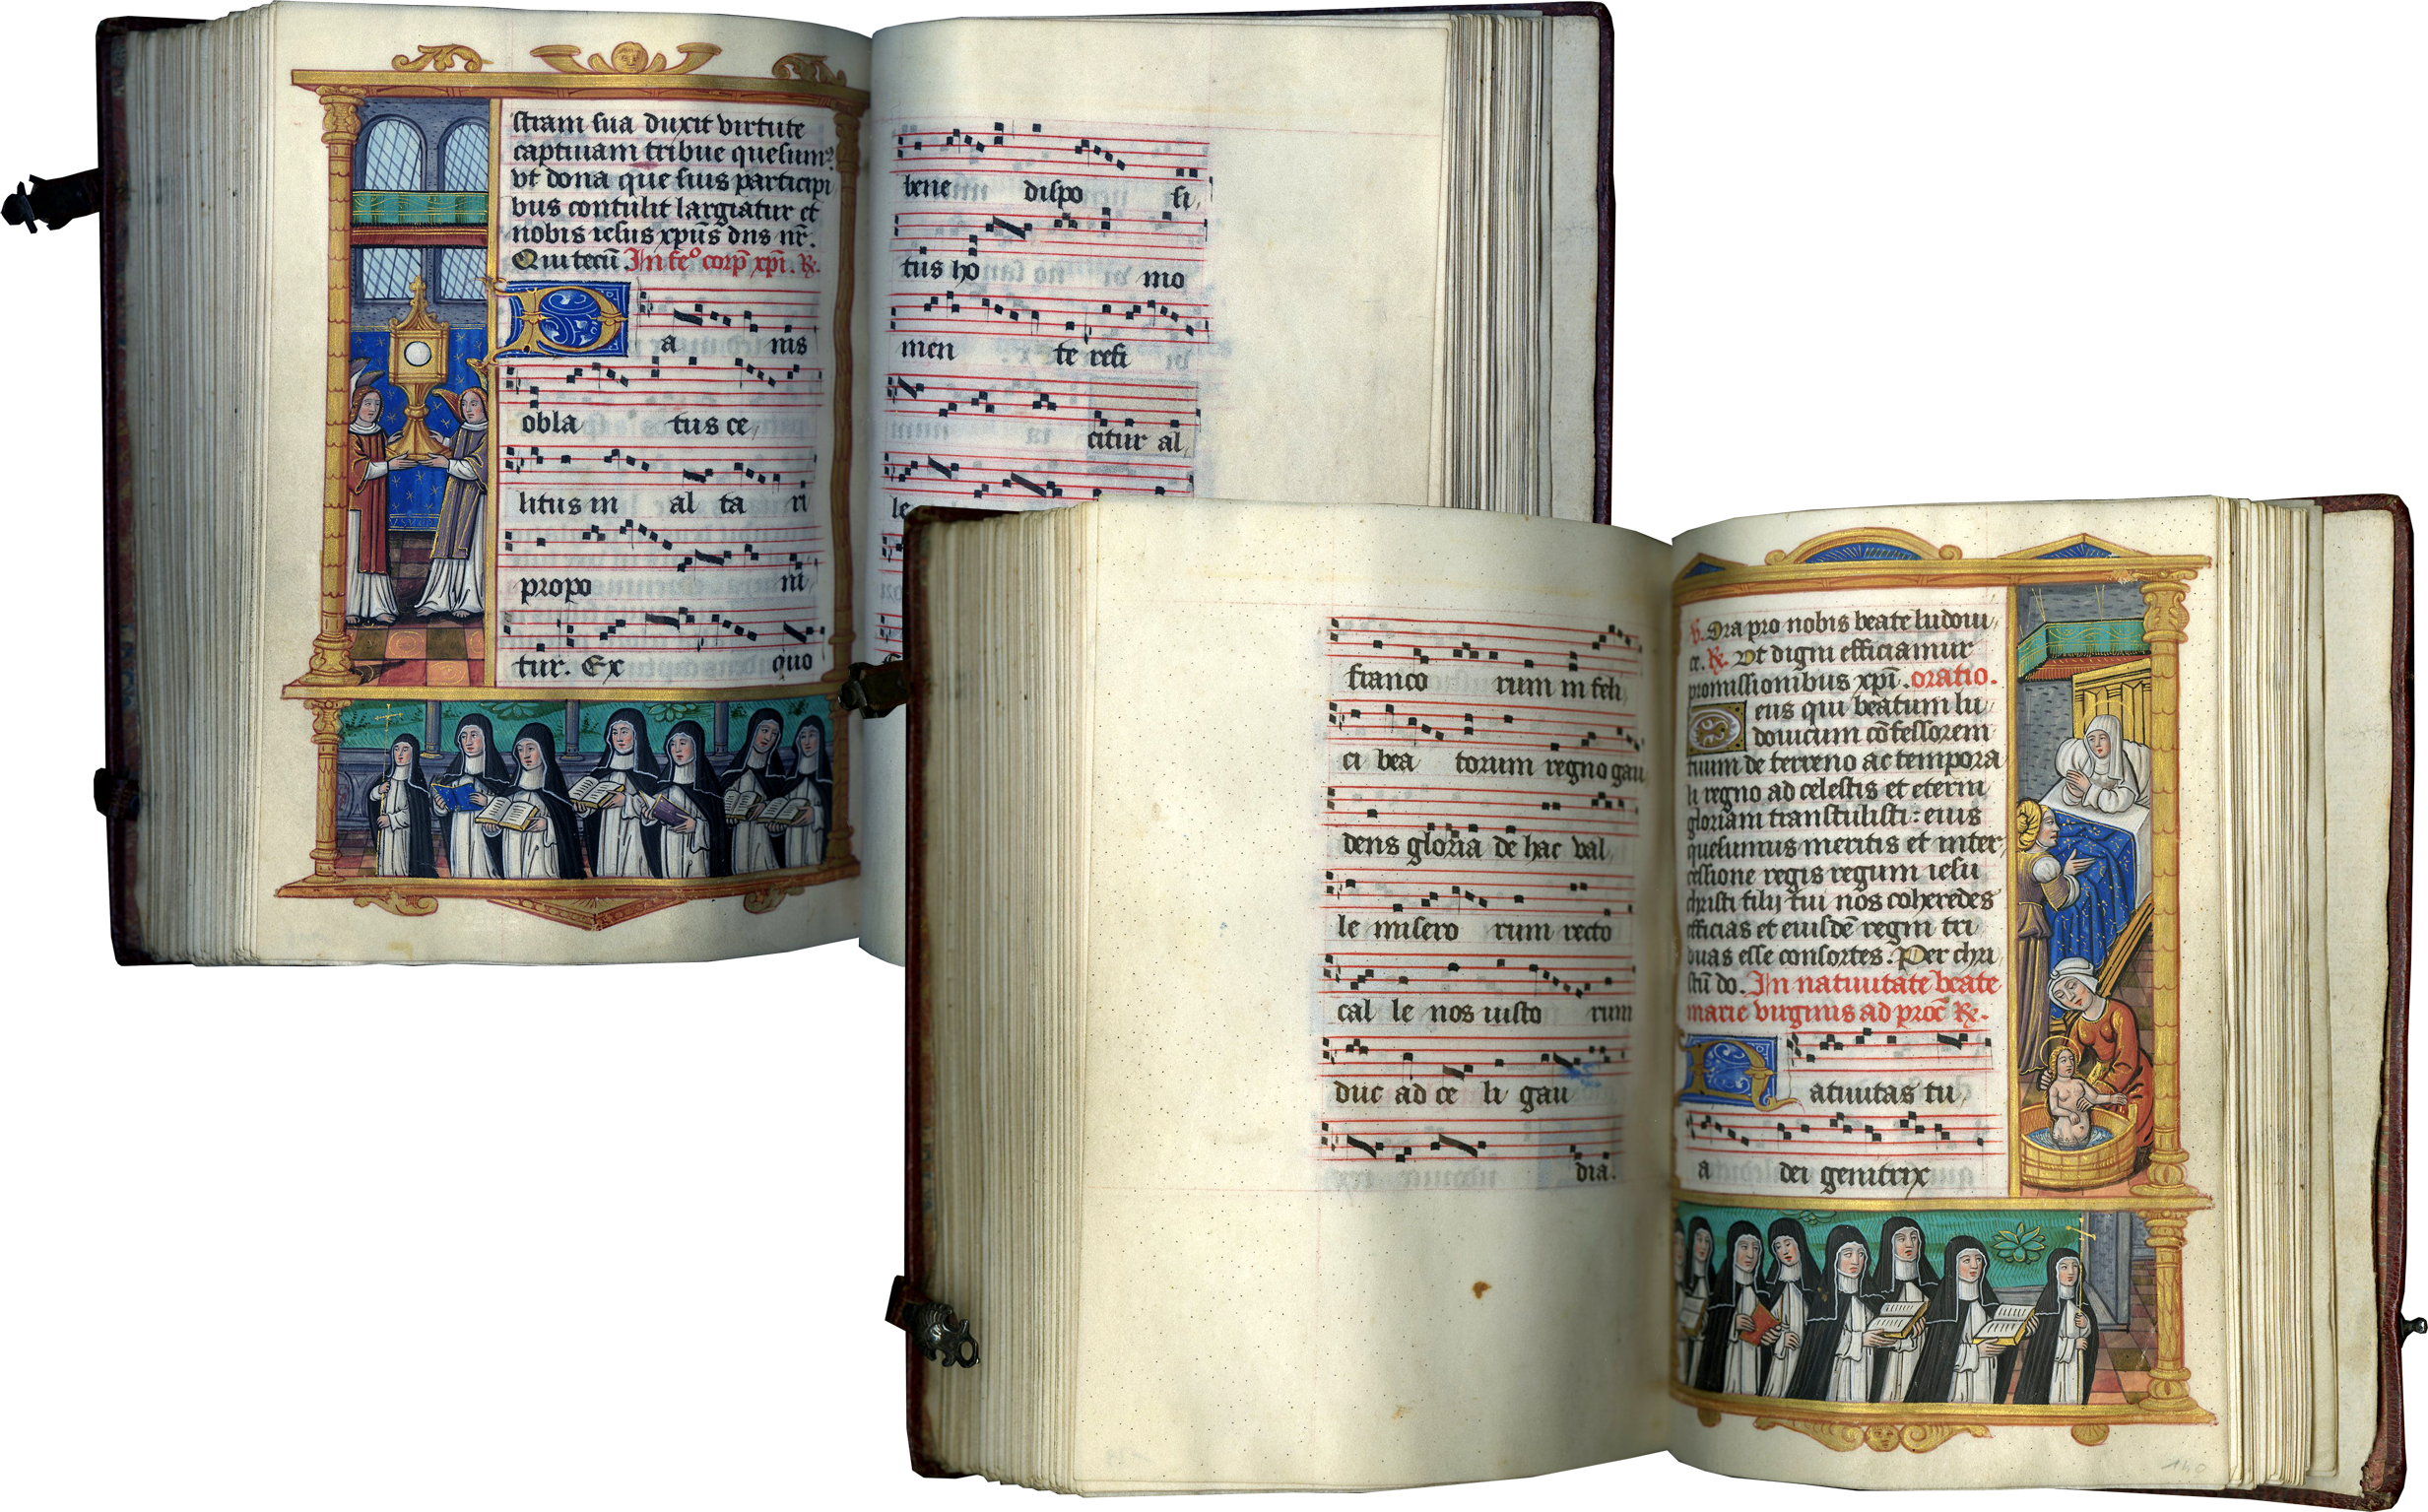 stram sua duxit virtute
captiuam tribue quesum⁹
vt dona que suis participi
bus contulit largiatur et
nobis iesus xp̄us dn̄s nr̄.
Qui tecū. In fe⁰ corp̄ xp̄i. ℞.
P a nis
obla tus ce,
litus in al ta ri
propo ni
tur. Ex quo
bene dispo si,
tus ho mo
men te refi
citur al,
le
franco rum in feli,
ci bea torum regno gau
dens gloria de hac val,
le misero rum recto
cal le nos iusto rum
duc ad ce li gau
dia.
℣. Ora pro nobis beate ludoui,
ce. ℞. Vt digni efficiamur
promissionibus xp̄i. oratio.
Deus qui beatum lu
douicum cōfessorem
tuum de terreno ac tempora
li regno ad celestis et eterni
gloriam transtulisti: eius
quesumus meritis et inter,
cessione regis regum iesu
christi filij tui nos coheredes
efficias et eiusdē regni tri
buas esse consortes. Per chri
stū do. In natiuitate beate
marie virginis ad proc̄ ℞.
N atiuitas tu,
a dei genitrix
140